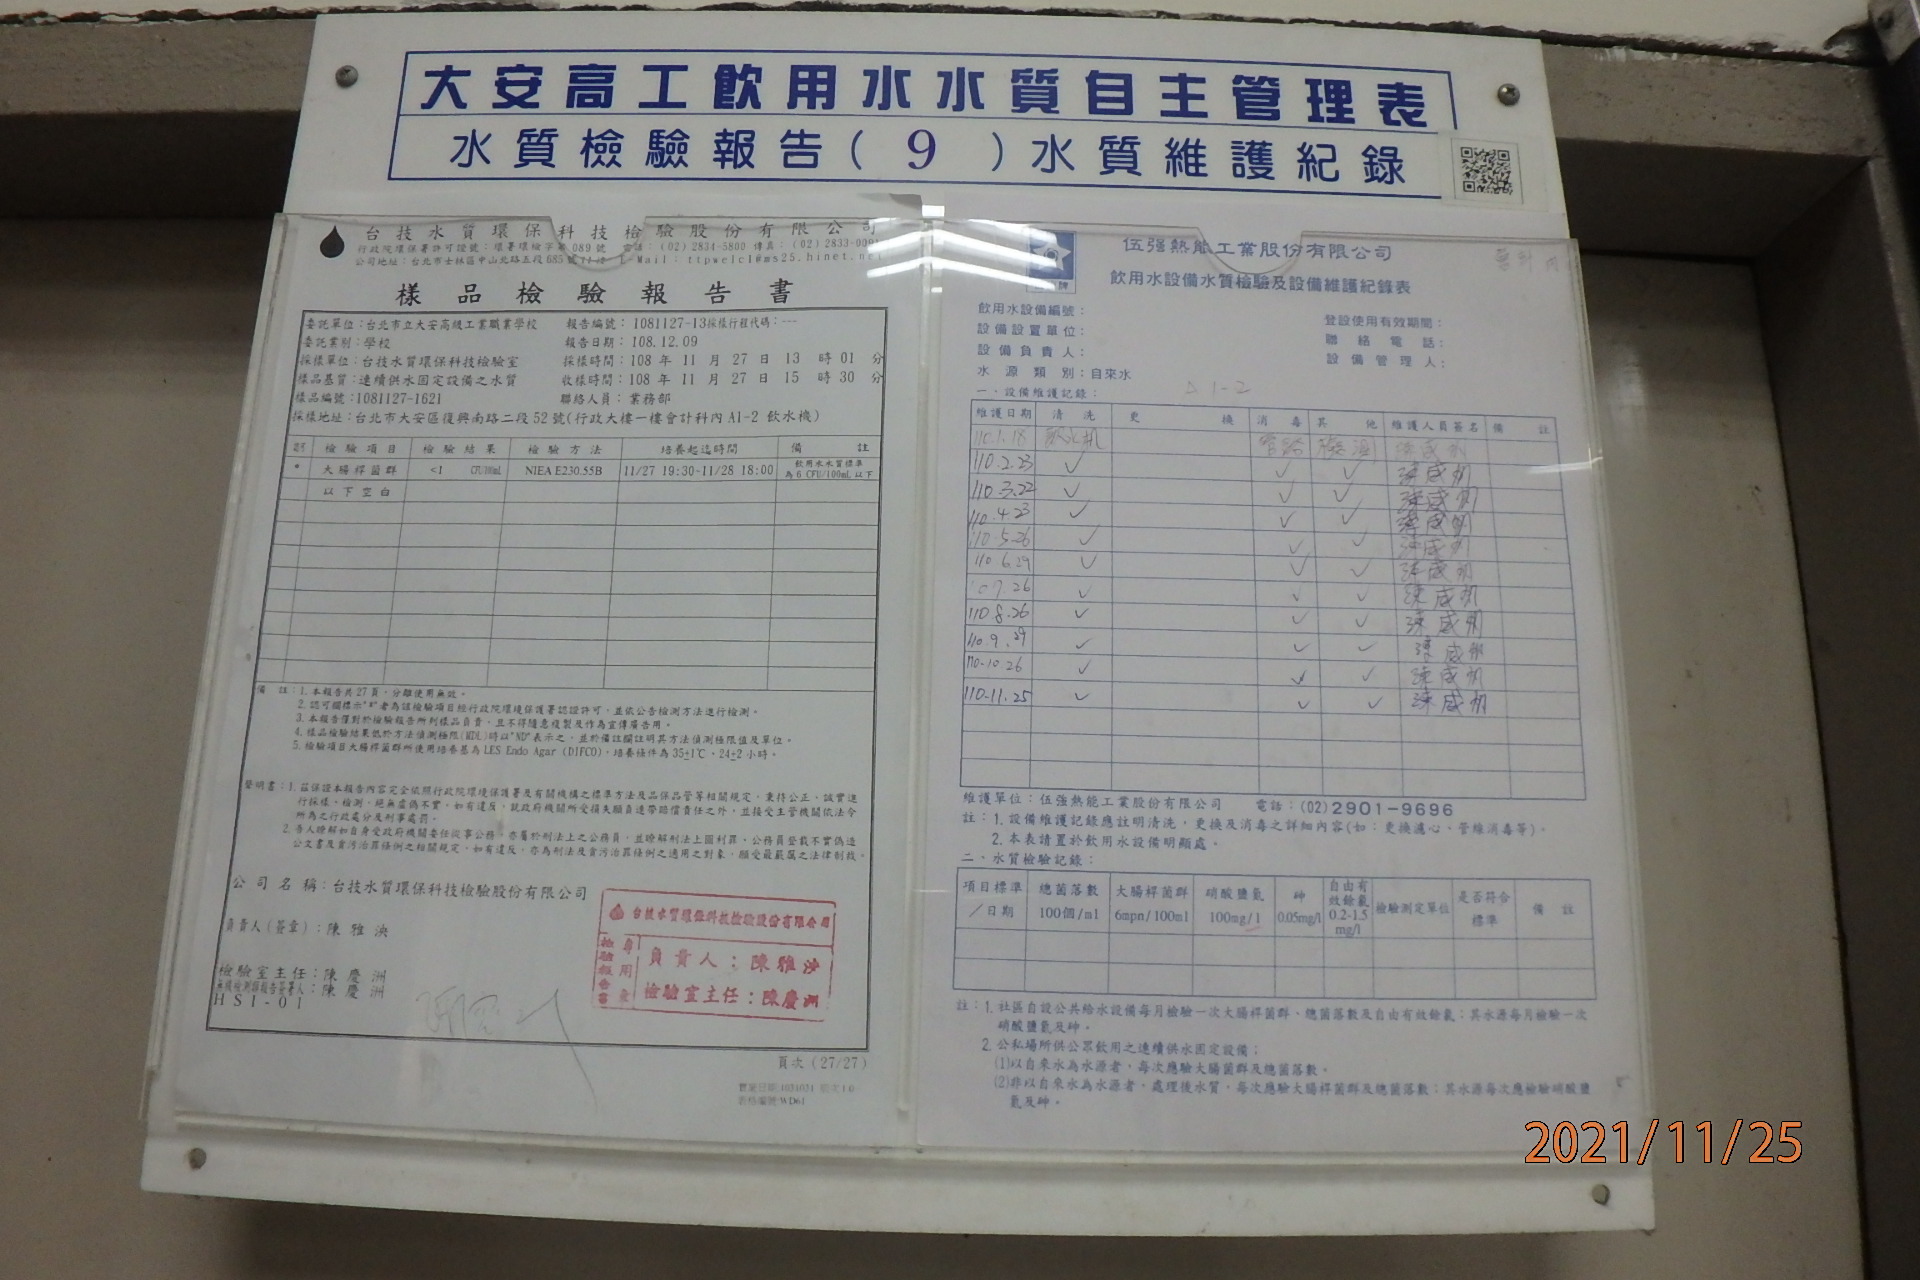 大安高工飲用水水質自主管理表
水質檢驗報告( 9 )水質維護紀錄
台技水質環保科技檢驗股份有限公司
行政院環保署許可證號：環署環檢字第089號 電話：(02)2834-5800 傳真：(02)2833-009
公司地址：台北市士林區中山北路五段685號 E-Mail：ttpwelcl@ms25.hinet.net
樣品檢驗報告書
委託單位：台北市立大安高級工業職業學校 報告編號：1081127-13採樣行程代碼：---
委託業別：學校 報告日期：108.12.09
採樣單位：台技水質環保科技檢驗室 採樣時間：108 年 11 月 27 日 13 時 01 分
樣品基質：連續供水固定設備之水質 收樣時間：108 年 11 月 27 日 15 時 30 分
樣品編號：1081127-1621 聯絡人員：業務部
採樣地址：台北市大安區復興南路二段52號(行政大樓一樓會計科內A1-2飲水機)
檢驗項目 檢驗結果 檢驗方法 培養起迄時間 備註
* 大腸桿菌群 <1 CFU/100mL NIEA E230.55B 11/27 19:30-11/28 18:00 飲用水水質標準為6 CFU/100mL以下
以下空白
備 註：1.本報告共27頁，分離使用無效。
2.認可欄標示"*"者為該檢驗項目經行政院環境保護署認證許可，並依公告檢測方法進行檢測。
3.本報告僅對於檢驗報告所列樣品負責，且不得隨意複製及作為宣傳廣告用。
4.樣品檢驗結果低於方法偵測極限(MDL)時以"ND"表示之，並於備註欄註明其方法偵測極限值及單位。
5.檢驗項目大腸桿菌群所使用培養基為LES Endo Agar (DIFCO)，培養條件為35±1℃、24±2小時。
聲明書：1.茲保證本報告內容完全依照行政院環境保護署及有關機構之標準方法及品保品管等相關規定，秉持公正、誠實進
行採樣、檢測。絕無虛偽不實，如有違反，就政府機關所受損失願負連帶賠償責任之外，並接受主管機關依法令
所為之行政處分及刑事處罰。
2.吾人瞭解如自身受政府機關委任從事公務，亦屬於刑法上之公務員，並瞭解刑法上圖利罪、公務員登載不實偽造
公文書及貪污治罪條例之相關規定，如有違反，亦為刑法及貪污治罪條例之適用之對象，願受最嚴厲之法律制裁。
公司名稱：台技水質環保科技檢驗股份有限公司
負責人(簽章)：陳雅泱
檢驗室主任：陳慶洲
無機檢測類報告簽署人：陳慶洲
HSI-01
台技水質環保科技檢驗股份有限公司
檢驗報告書專用章
負責人：陳雅泱
檢驗室主任：陳慶洲
頁次 (27/27)
伍強熱能工業股份有限公司
飲用水設備水質檢驗及設備維護紀錄表
飲用水設備編號： 登設使用有效期間：
設備設置單位： 聯絡電話：
設備負責人： 設備管理人：
水源類別：自來水
一、設備維護記錄： A1-2
維護日期 清洗 更換 消毒 其他 維護人員簽名 備註
110.1.18 飲水机
110.2.23 ✓ ✓ ✓ 陳威州
110.3.22 ✓ ✓ ✓ 陳威州
110.4.23 ✓ ✓ ✓ 陳威州
110.5.26 ✓ ✓ ✓ 陳威州
110.6.29 ✓ ✓ ✓ 陳威州
7.26 ✓ ✓ ✓ 陳威州
110.8.26 ✓ ✓ ✓ 陳威州
110.9.29 ✓ ✓ ✓ 陳威州
110.10.26 ✓ ✓ ✓ 陳威州
110.11.25 ✓ ✓ ✓ 陳威州
維護單位：伍強熱能工業股份有限公司 電話：(02)2901-9696
註：1.設備維護記錄應註明清洗，更換及消毒之詳細內容(如：更換濾心、管線消毒等)。
2.本表請置於飲用水設備明顯處。
二、水質檢驗記錄：
項目標準／日期 總菌落數100個/ml 大腸桿菌群6mpn/100ml 硝酸鹽氮100mg/l 砷0.05mg/l 自由有效餘氯0.2-1.5mg/l 檢驗測定單位 是否符合標準 備註
註：1.社區自設公共給水設備每月檢驗一次大腸桿菌群、總菌落數及自由有效餘氯；其水源每月檢驗一次
硝酸鹽氮及砷。
2.公私場所供公眾飲用之連續供水固定設備；
(1)以自來水為水源者，每次應驗大腸菌群及總菌落數。
(2)非以自來水為水源者，處理後水質，每次應驗大腸桿菌群及總菌落數；其水源每次應檢驗硝酸鹽
氮及砷。
2021/11/25